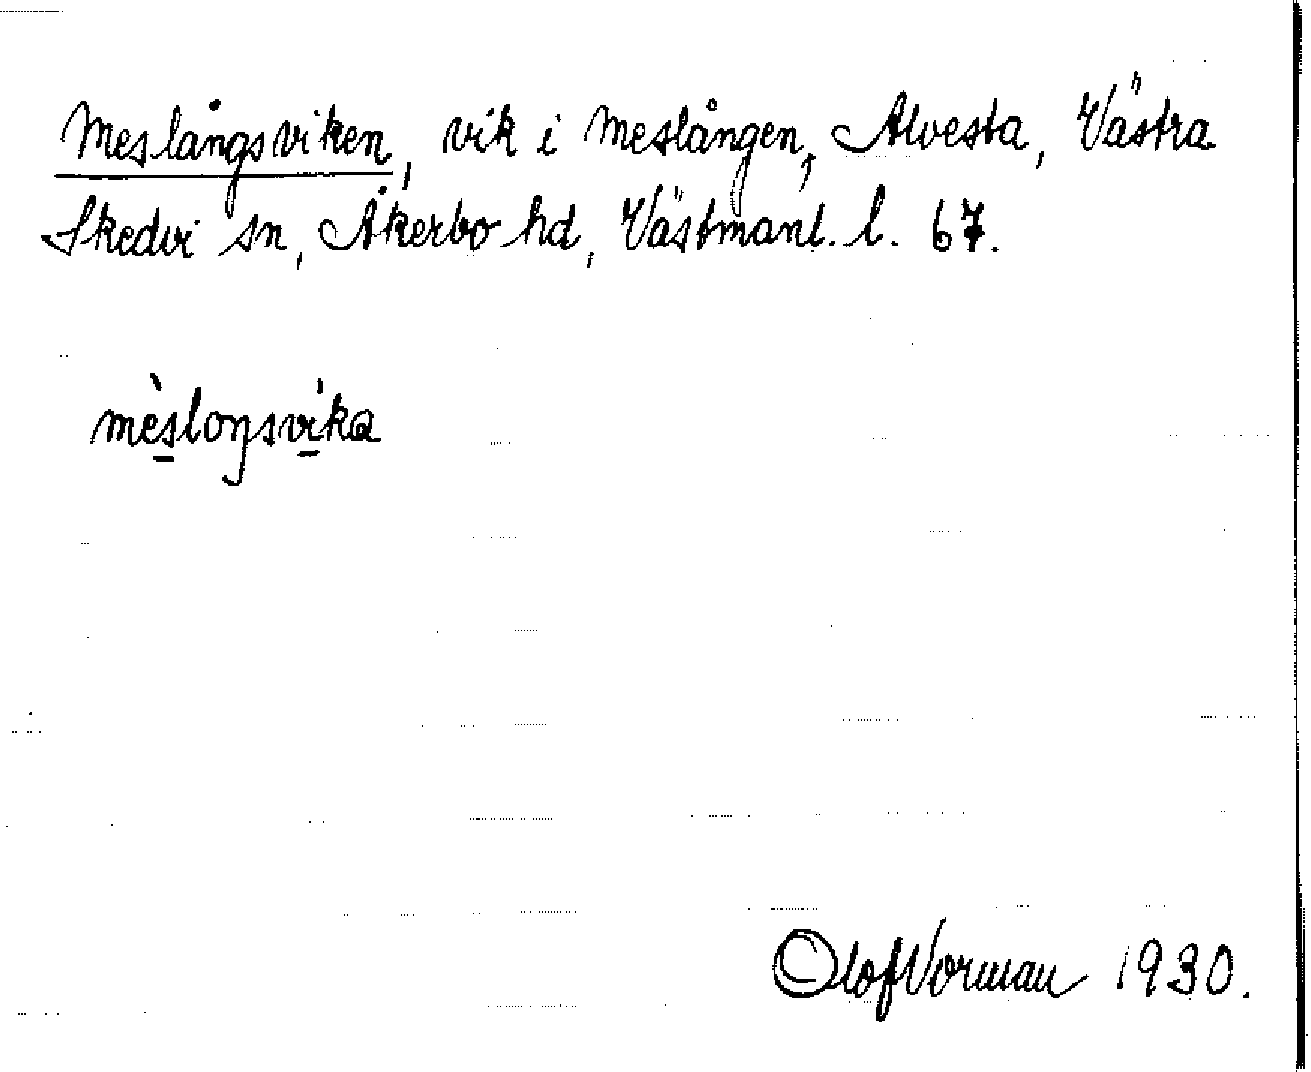 Meslångsviken, vik i Meslången, Alvesta, Västra
Skedvi sn, Åkerbo hd, Västmanl. l. 67.
mè̱sloŋsvi̱̍ka
Olof Vorman 1930.